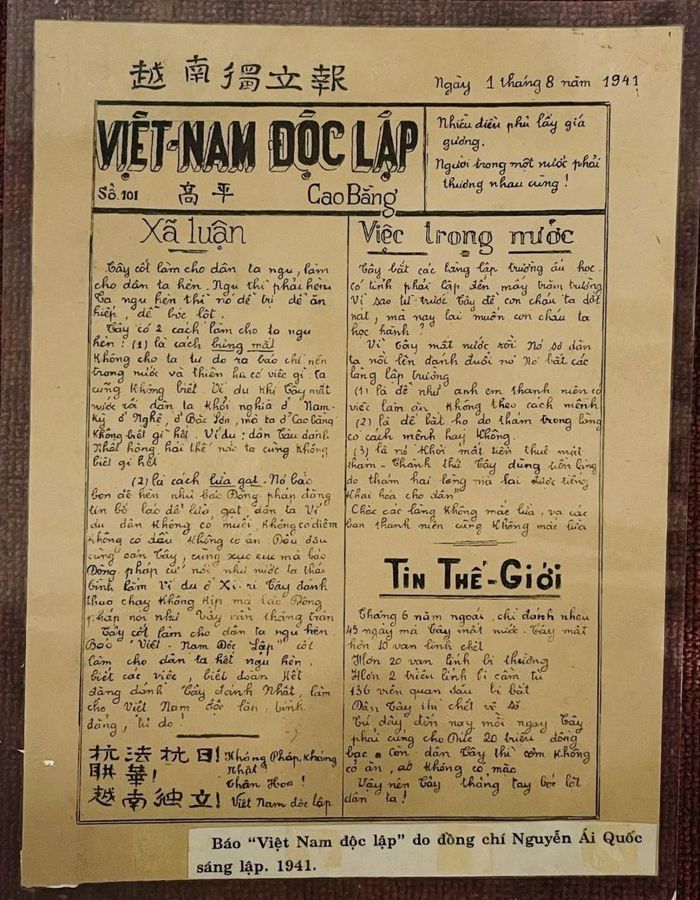 越南獨立報
Ngày 1 tháng 8 năm 1941
VIỆT-NAM ĐỘC LẬP
Số 101 高平 Cao Bằng
Nhiễu điều phủ lấy giá
gương.
Người trong một nước phải
thương nhau cùng!
Xã luận
Tây cốt làm cho dân ta ngu, làm
cho dân ta hèn. Ngu thì phải hèn
Ta ngu hèn thì nó dễ trị dễ ăn
hiếp, dễ bóc lột.
Tây có 2 cách làm cho ta ngu
hèn: (1) là cách bưng mắt
không cho ta tự do ra báo chí nên
trong nước và thiên hạ có việc gì, ta
cũng không biết Ví dụ khi Tây mất
nước rồi dân ta khởi nghĩa ở Nam-
Kỳ ở Nghệ, ở Bắc Sơn, mà ta ở Cao bằng
không biết gì hết. Ví dụ: dân Tàu đánh
Nhật hăng hái thế nào ta cũng không
biết gì hết
(2) là cách lừa gạt. Nó bảo
bọn đê hèn như báo Đông pháp đăng
tin bố láo để lừa gạt dân ta Ví
dụ dân không có muối, không có diêm
không có dầu không có ăn. Đâu đâu
cũng oán Tây, cũng xục xục mà báo
Đông pháp cứ nói như nước ta thái
bình lắm Ví dụ ở Xi-ri Tây đánh
thua chạy không kịp mà báo Đông
pháp nói như Tây vẫn thắng trận
Tây cốt làm cho dân ta ngu hèn.
Báo "Việt-Nam Độc Lập" cốt
làm cho dân ta hết ngu hèn,
biết các việc, biết đoàn kết
đặng đánh Tây đánh Nhật, làm
cho Việt Nam độc lập, bình
đẳng, tự do!
抗法抗日! Kháng Pháp, kháng
Nhật
聯華! Thân Hoa!
越南独立! Việt Nam độc lập
Việc trong nước
Tây bắt các làng lập trường ấu học.
có tỉnh phải lập đến mấy trăm trường
Vì sao từ trước Tây để con cháu ta dốt
nát, mà nay lại muốn con cháu ta
học hành?
Vì Tây mất nước rồi. Nó sợ dân
ta nổi lên đánh đuổi nó Nó bắt các
làng lập trường
(1) là để như anh em thanh niên có
việc làm ăn không theo cách mệnh
(2) là để bắt họ do thám trong làng
có cách mệnh hay không.
(3) là nó khỏi mất tiền thuê mật
thám - Thành thử Tây dùng tiền làng
do thám hại làng mà lại được tiếng
"Khai hóa cho dân"
Chắc các làng không mắc lừa, và các
bạn thanh niên cũng không mắc lừa
TIN THẾ-GIỚI
Tháng 6 năm ngoái, chỉ đánh nhau
45 ngày mà Tây mất nước. Tây mất
hơn 10 vạn lính chết
Hơn 20 vạn lính bị thương
Hơn 2 triệu lính bị cầm tù
136 viên quan sáu bị bắt
Dân Tây thì chết vô số
Từ đấy, đến nay mỗi ngày Tây
phải cúng cho Đức 20 triệu đồng
bạc. Còn dân Tây thì cơm không
có ăn, áo không có mặc
Vậy nên Tây thẳng tay bóc lột
dân ta!
Báo "Việt Nam độc lập" do đồng chí Nguyễn Ái Quốc
sáng lập. 1941.